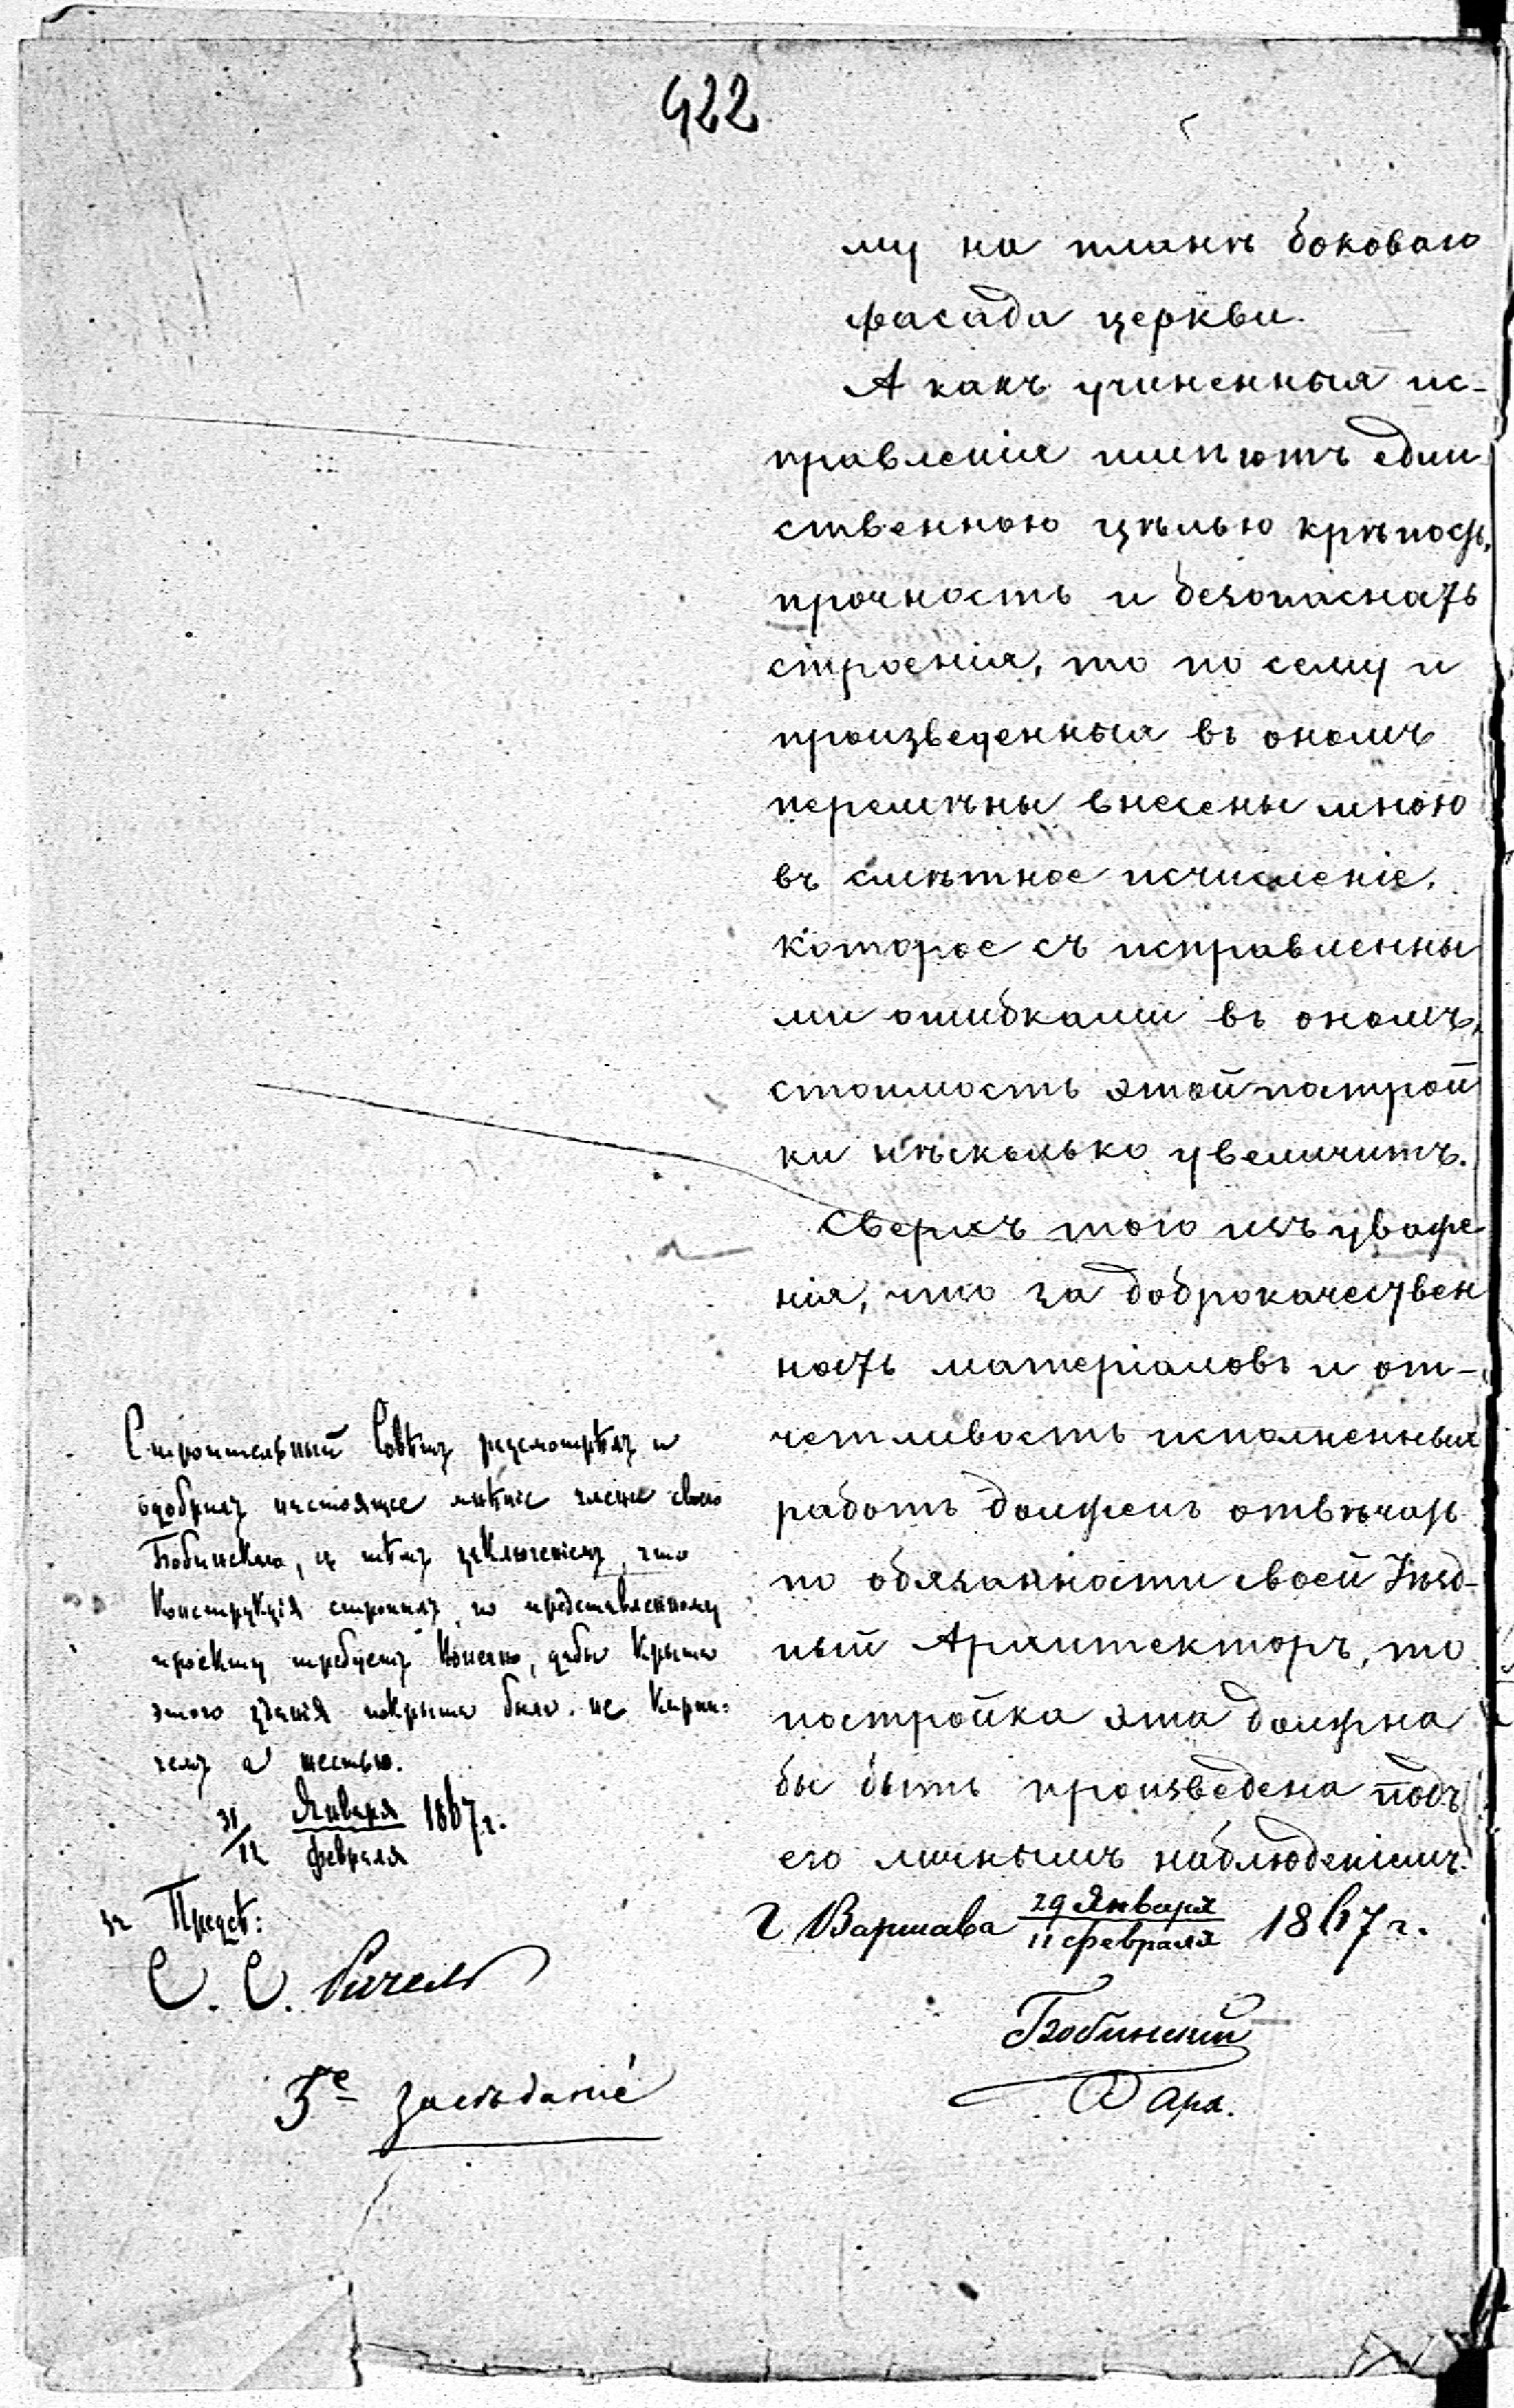 422
му на планѣ боковаго
фасада церкви.
А какъ учиненныя ис-
правленія имѣютъ един
ственною цѣлью крѣпость,
прочность и безопасность
строенія, то по сему и
произведенныя въ ономъ
перемѣны внесены мною
въ смѣтное исчисленіе,
которое съ исправленны
ми ошибками въ ономъ,
стоимость этой построй
ки нѣсколько увеличитъ.
Сверхъ того изъ уваже
нія, что за доброкачествен
ность матеріаловъ и от-
четливость исполненныхъ
работъ долженъ отвѣчать
по обязанности своей Уѣзд-
ный Архитекторъ, то
постройка эта должна
бы быть произведена подъ
его личнымъ наблюденіемъ.
г Варшава 29 Января / 11 февраля 1867 г.
Бобинскій
Строительный Совѣтъ разсмотрѣлъ и
одобрилъ настоящее мнѣніе члена своего
Бобинскаго, съ тѣмъ заключеніемъ, что
Конструкція стропилъ, по представленному
проекту требуетъ, дабы крыша
этого зданія покрыта была не кирпи-
чемъ а жестью.
31/12 Января / февраля 1867 г.
за Предсѣ:
С. С.
5е засѣданіе